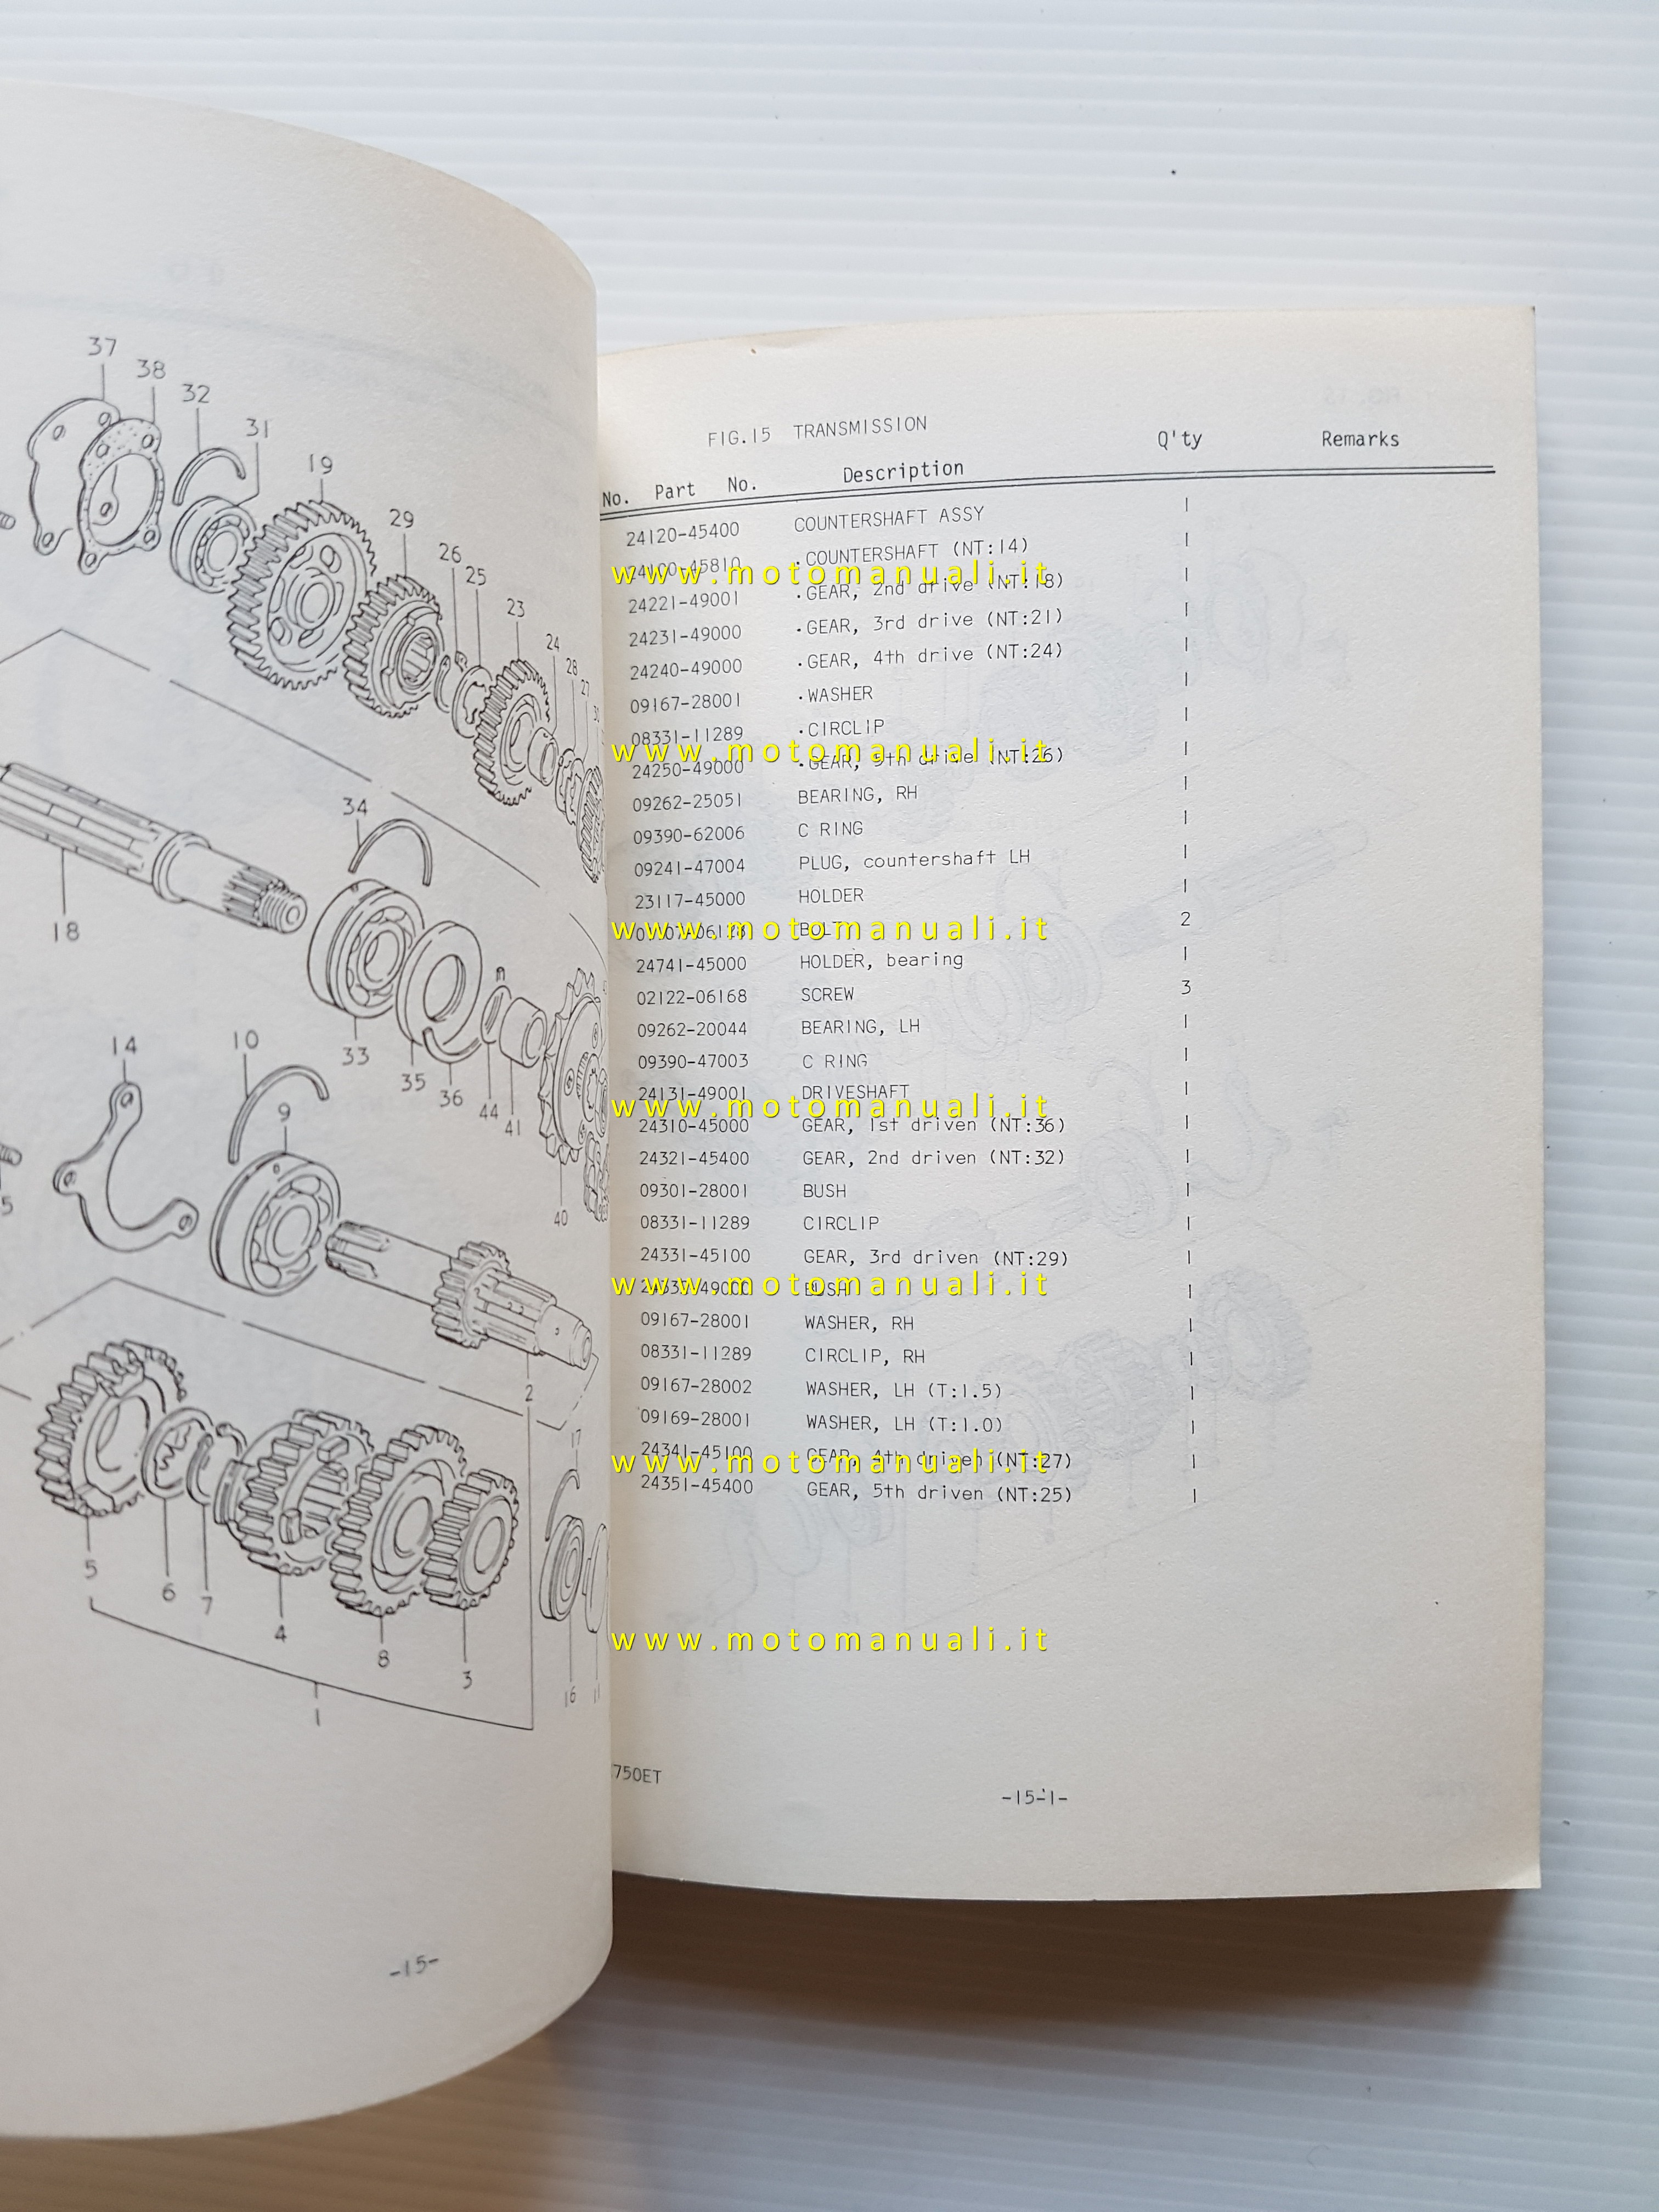 37
38
32
31
19
29
26
25
23
24
28
27
34
18
33
35
36
44
41
40
14
10
9
2
17
5
6
7
4
8
3
16
11
1
-15-
FIG.15 TRANSMISSION
No. Part No. Description Q'ty Remarks
24120-45400 COUNTERSHAFT ASSY 1
24100-45810 ·COUNTERSHAFT (NT:14) 1
www.motomanuali.it
24221-49001 ·GEAR, 2nd drive (NT:18) 1
24231-49000 ·GEAR, 3rd drive (NT:21) 1
24240-49000 ·GEAR, 4th drive (NT:24) 1
09167-28001 ·WASHER 1
08331-11289 ·CIRCLIP 1
www.motomanuali.it
24250-49000 ·GEAR, 5th drive (NT:26) 1
09262-25051 BEARING, RH 1
09390-62006 C RING 1
09241-47004 PLUG, countershaft LH 1
23117-45000 HOLDER 1
BOLT 2
www.motomanuali.it
24741-45000 HOLDER, bearing 1
02122-06168 SCREW 3
09262-20044 BEARING, LH 1
09390-47003 C RING 1
24131-49001 DRIVESHAFT 1
www.motomanuali.it
24310-45000 GEAR, 1st driven (NT:36) 1
24321-45400 GEAR, 2nd driven (NT:32) 1
09301-28001 BUSH 1
08331-11289 CIRCLIP 1
24331-45100 GEAR, 3rd driven (NT:29) 1
BUSH 1
www.motomanuali.it
09167-28001 WASHER, RH 1
08331-11289 CIRCLIP, RH 1
09167-28002 WASHER, LH (T:1.5) 1
09169-28001 WASHER, LH (T:1.0) 1
24341-45100 GEAR, 4th driven (NT:27) 1
www.motomanuali.it
24351-45400 GEAR, 5th driven (NT:25) 1
www.motomanuali.it
750ET
-15-1-